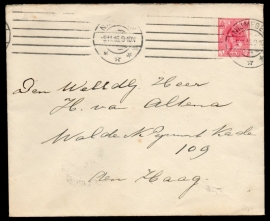 Den WelEdlg Heer
H. van Altena
Walde K Pyrmont Kade
109
Den Haag.